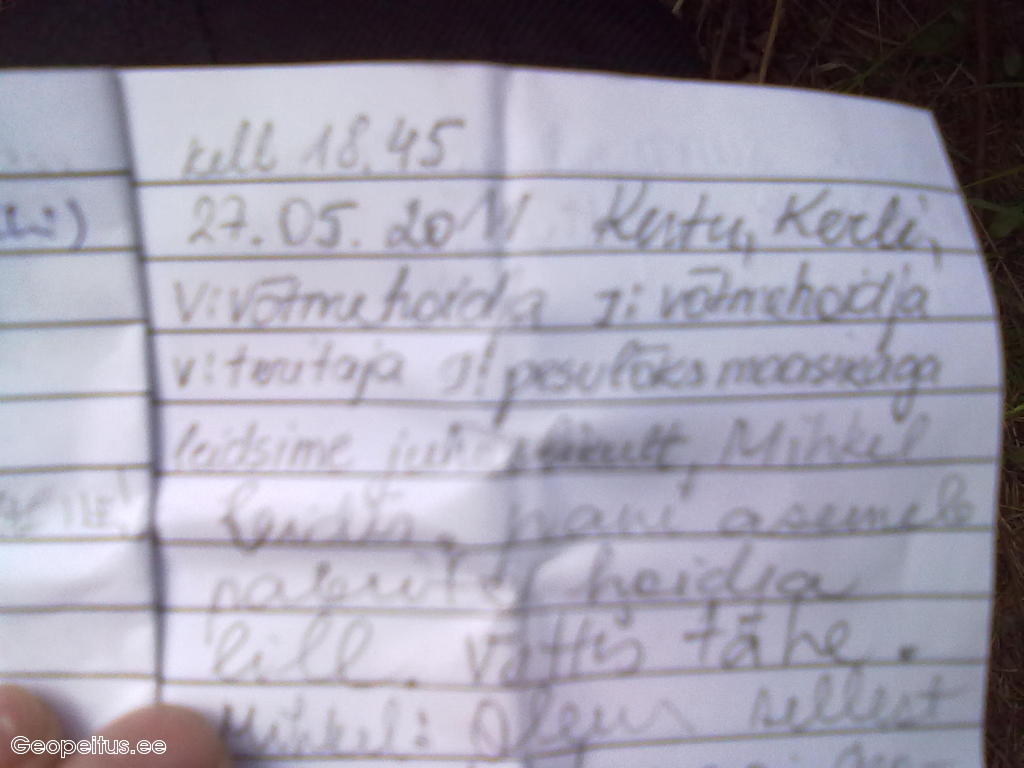 kell 18.45
27.05.2011 Kertu, Kerli,
V: võtmehoidja J: võtmehoidja
V: teritaja J: pesulõks maasikaga
leidsime juhuslikult, Mihkel
leidis. pani asemele
hoidja
lill. Võttis tähe.
Mihkel: Olen sellest
Geopeitus.ee